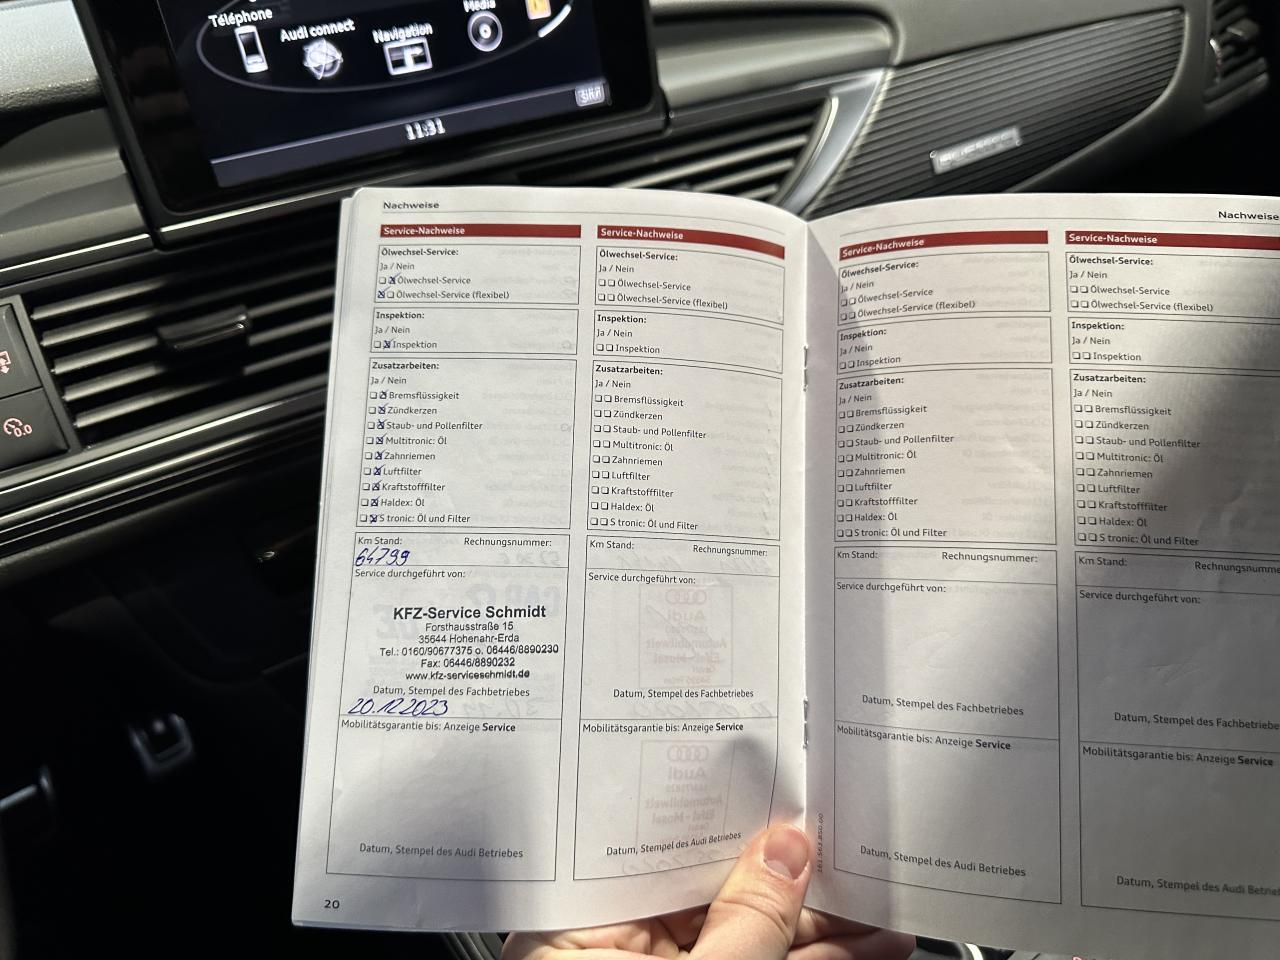 Téléphone
Audi connect
Navigation
Media
11:31
Nachweise
Service-Nachweise
Ölwechsel-Service:
Ja / Nein
Ölwechsel-Service
Ölwechsel-Service (flexibel)
Inspektion:
Ja / Nein
Inspektion
Zusatzarbeiten:
Ja / Nein
Bremsflüssigkeit
Zündkerzen
Staub- und Pollenfilter
Multitronic: Öl
Zahnriemen
Luftfilter
Kraftstofffilter
Haldex: Öl
S tronic: Öl und Filter
Km Stand: Rechnungsnummer:
64799
Service durchgeführt von:
KFZ-Service Schmidt
Forsthausstraße 15
35644 Hohenahr-Erda
Tel.: 0160/90677375 o. 06446/8890230
Fax: 06446/8890232
www.kfz-serviceschmidt.de
Datum, Stempel des Fachbetriebes
20.12.2023
Mobilitätsgarantie bis: Anzeige Service
Datum, Stempel des Audi Betriebes
20
Service-Nachweise
Ölwechsel-Service:
Ja / Nein
Ölwechsel-Service
Ölwechsel-Service (flexibel)
Inspektion:
Ja / Nein
Inspektion
Zusatzarbeiten:
Ja / Nein
Bremsflüssigkeit
Zündkerzen
Staub- und Pollenfilter
Multitronic: Öl
Zahnriemen
Luftfilter
Kraftstofffilter
Haldex: Öl
S tronic: Öl und Filter
Km Stand: Rechnungsnummer:
Service durchgeführt von:
Datum, Stempel des Fachbetriebes
Mobilitätsgarantie bis: Anzeige Service
Datum, Stempel des Audi Betriebes
Nachweise
Service-Nachweise
Ölwechsel-Service:
Ja / Nein
Ölwechsel-Service
Ölwechsel-Service (flexibel)
Inspektion:
Ja / Nein
Inspektion
Zusatzarbeiten:
Ja / Nein
Bremsflüssigkeit
Zündkerzen
Staub- und Pollenfilter
Multitronic: Öl
Zahnriemen
Luftfilter
Kraftstofffilter
Haldex: Öl
S tronic: Öl und Filter
Km Stand: Rechnungsnummer:
Service durchgeführt von:
Datum, Stempel des Fachbetriebes
Mobilitätsgarantie bis: Anzeige Service
Datum, Stempel des Audi Betriebes
Service-Nachweise
Ölwechsel-Service:
Ja / Nein
Ölwechsel-Service
Ölwechsel-Service (flexibel)
Inspektion:
Ja / Nein
Inspektion
Zusatzarbeiten:
Ja / Nein
Bremsflüssigkeit
Zündkerzen
Staub- und Pollenfilter
Multitronic: Öl
Zahnriemen
Luftfilter
Kraftstofffilter
Haldex: Öl
S tronic: Öl und Filter
Km Stand: Rechnungsnumme
Service durchgeführt von:
Datum, Stempel des Fachbetriebes
Mobilitätsgarantie bis: Anzeige Service
Datum, Stempel des Audi Betriebe